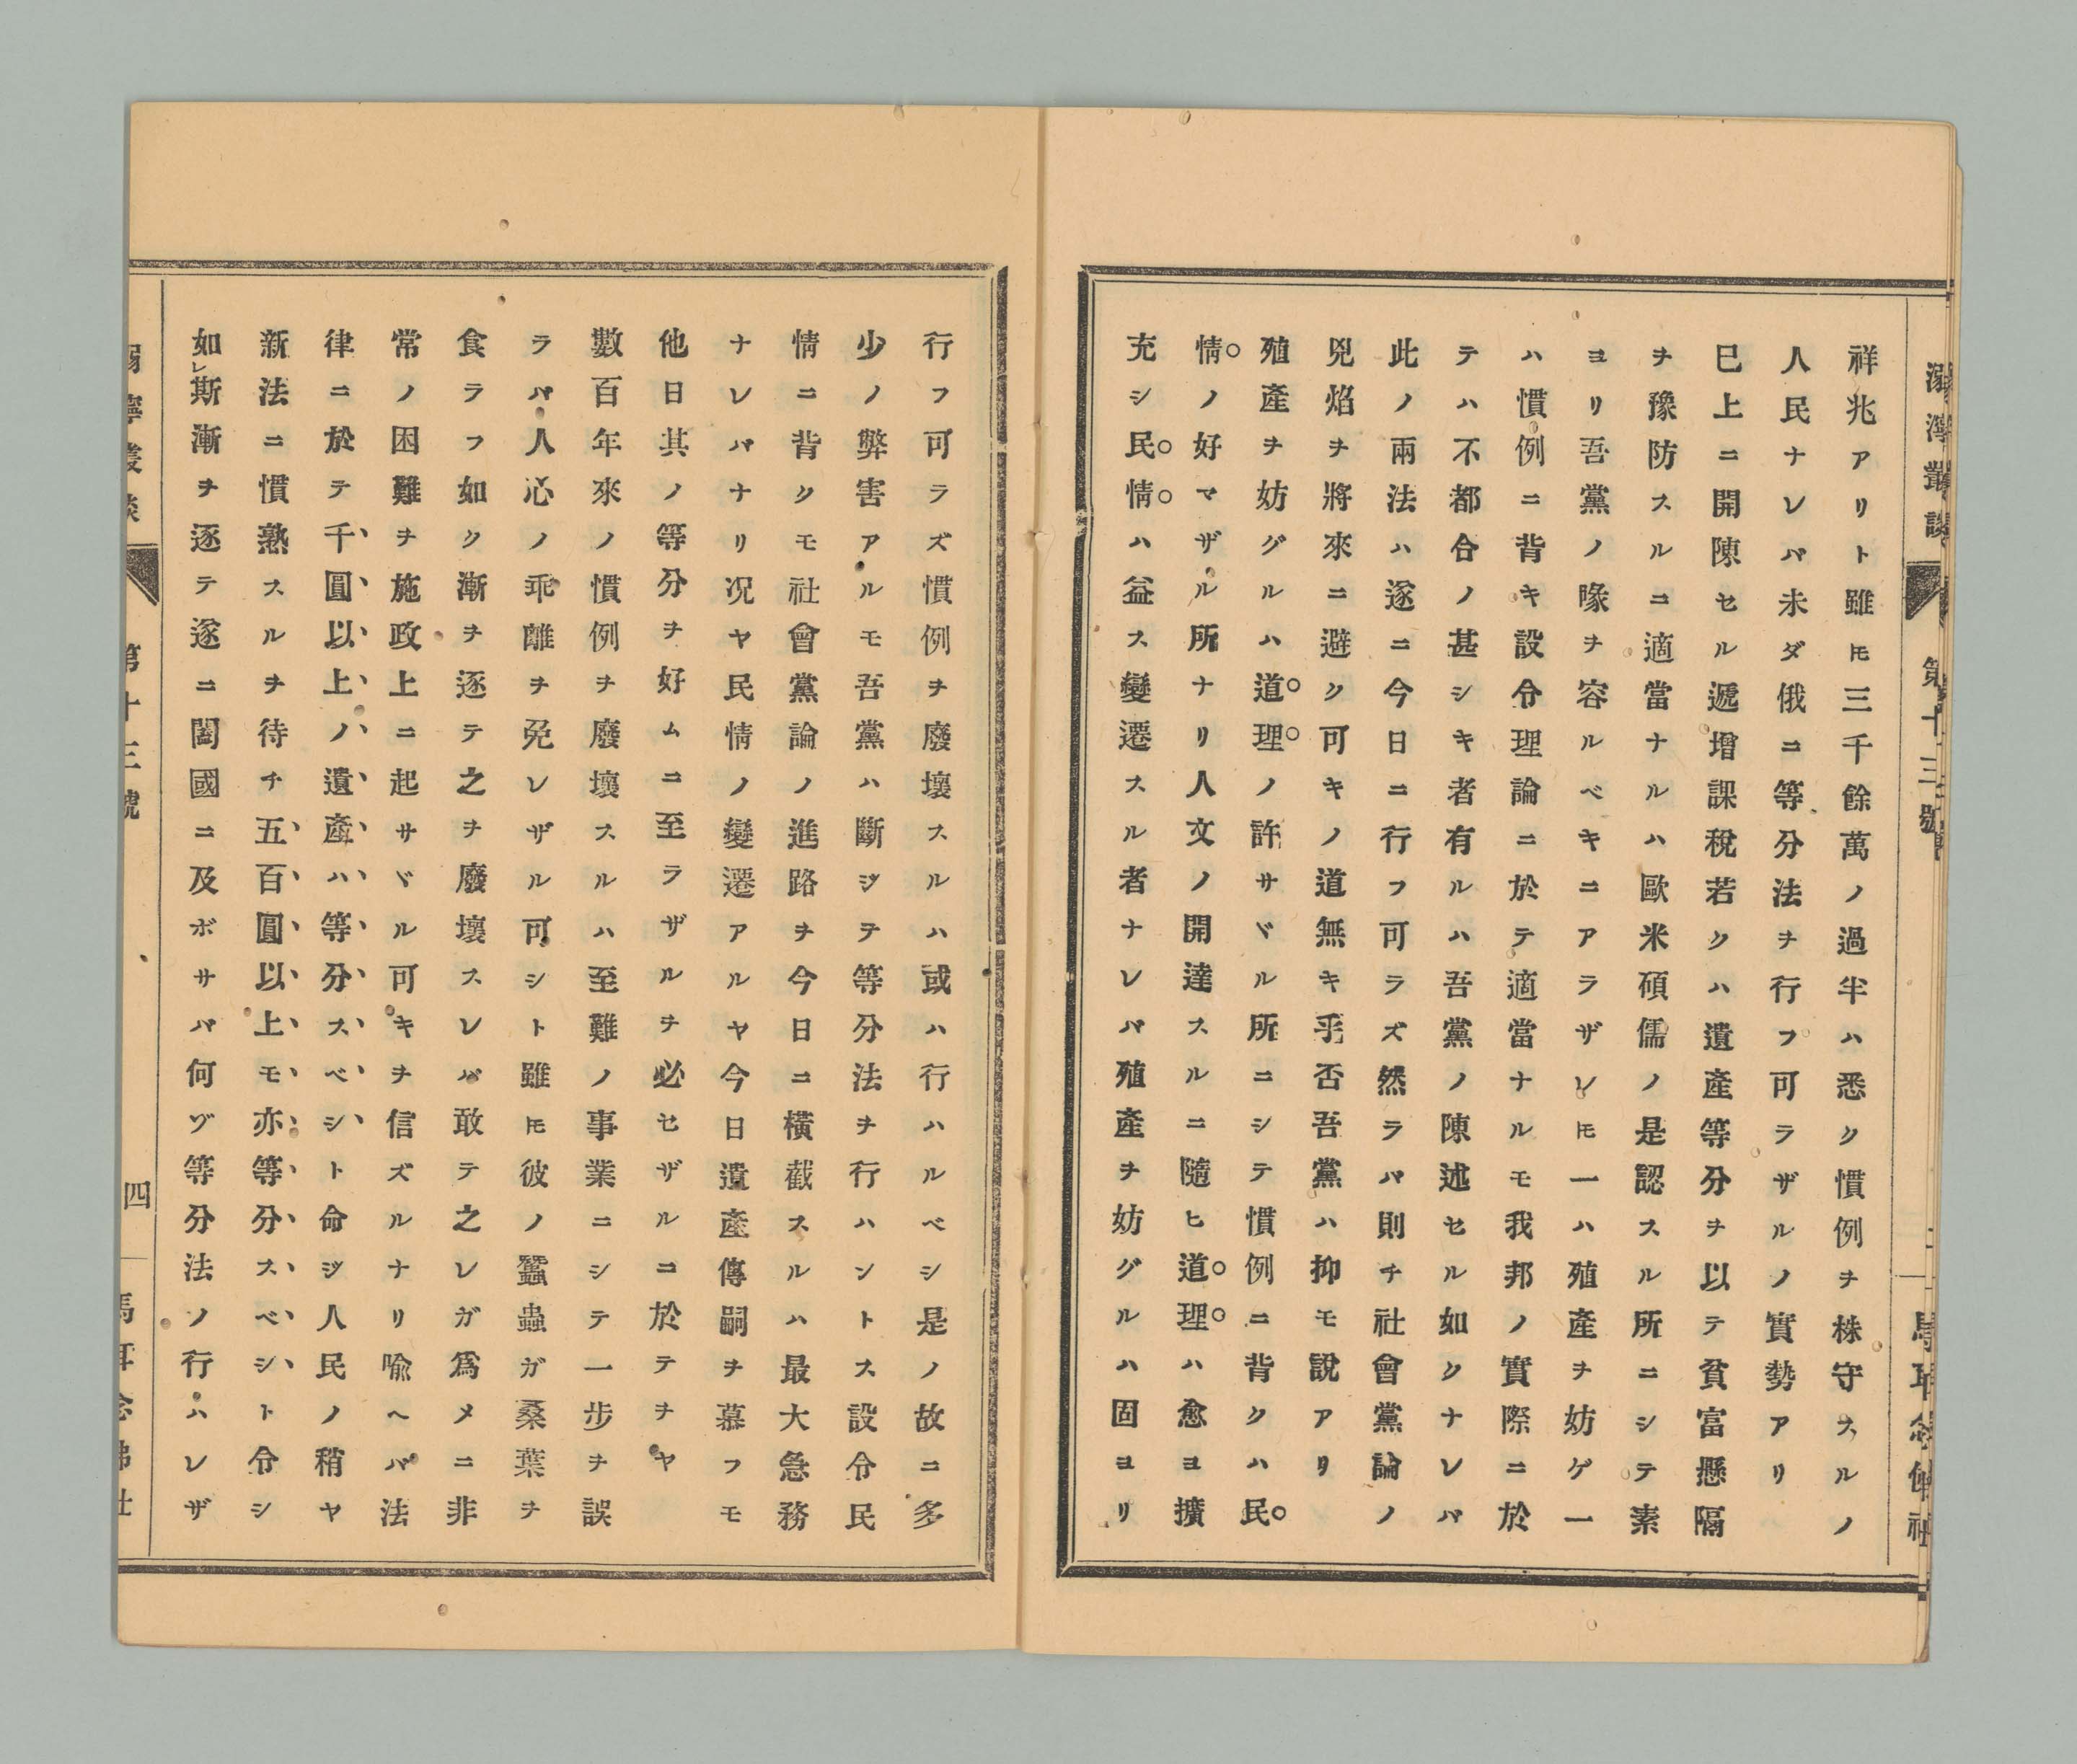 叢談
第十三號
祥兆アリト雖𪜈三千餘萬ノ過半ハ悉ク慣例ヲ株守スルノ
人民ナレバ未ダ俄ニ等分法ヲ行フ可ラザルノ實勢アリ
已上ニ開陳セル遞增課稅若クハ遺產等分ヲ以テ貧富懸隔
ヲ豫防スルニ適當ナルハ歐米碩儒ノ是認スル所ニシテ素
ヨリ吾黨ノ喙ヲ容ルベキニアラザレ𪜈一ハ殖產ヲ妨ゲ一
ハ慣例ニ背キ設令理論ニ於テ適當ナルモ我邦ノ實際ニ於
テハ不都合ノ甚シキ者有ルハ吾黨ノ陳述セル如クナレバ
此ノ兩法ハ遂ニ今日ニ行フ可ラズ然ラバ則チ社會黨論ノ
兇焰ヲ將來ニ避ク可キノ道無キ乎否吾黨ハ抑モ說アリ
殖產ヲ妨グルハ道理ノ許サヾル所ニシテ慣例ニ背クハ民
情ノ好マザル所ナリ人文ノ開達スルニ隨ヒ道理ハ愈ヨ擴
充シ民情ハ益ス變遷スル者ナレバ殖產ヲ妨グルハ固ヨリ
行フ可ラズ慣例ヲ廢壞スルハ或ハ行ハルベシ是ノ故ニ多
少ノ弊害アルモ吾黨ハ斷ジテ等分法ヲ行ハントス設令民
情ニ背クモ社會黨論ノ進路ヲ今日ニ橫截スルハ最大急務
ナレバナリ况ヤ民情ノ變遷アルヤ今日遺產傳嗣ヲ慕フモ
他日其ノ等分ヲ好ムニ至ラザルヲ必セザルニ於テヲヤ
數百年來ノ慣例ヲ廢壞スルハ至難ノ事業ニシテ一步ヲ誤
ラバ人心ノ乖離ヲ免レザル可シト雖𪜈彼ノ蠶蟲ガ桑葉ヲ
食ラフ如ク漸ヲ逐テ之ヲ廢壞スレバ敢テ之レガ爲メニ非
常ノ困難ヲ施政上ニ起サヾル可キヲ信ズルナリ喩ヘバ法
律ニ於テ千圓以上ノ遺產ハ等分スベシト命ジ人民ノ稍ヤ
新法ニ慣熟スルヲ待チ五百圓以上モ亦等分スベシト令シ
如レ斯漸ヲ逐テ遂ニ闔國ニ及ボサバ何ヅ等分法ノ行ハレザ
第十三號
四